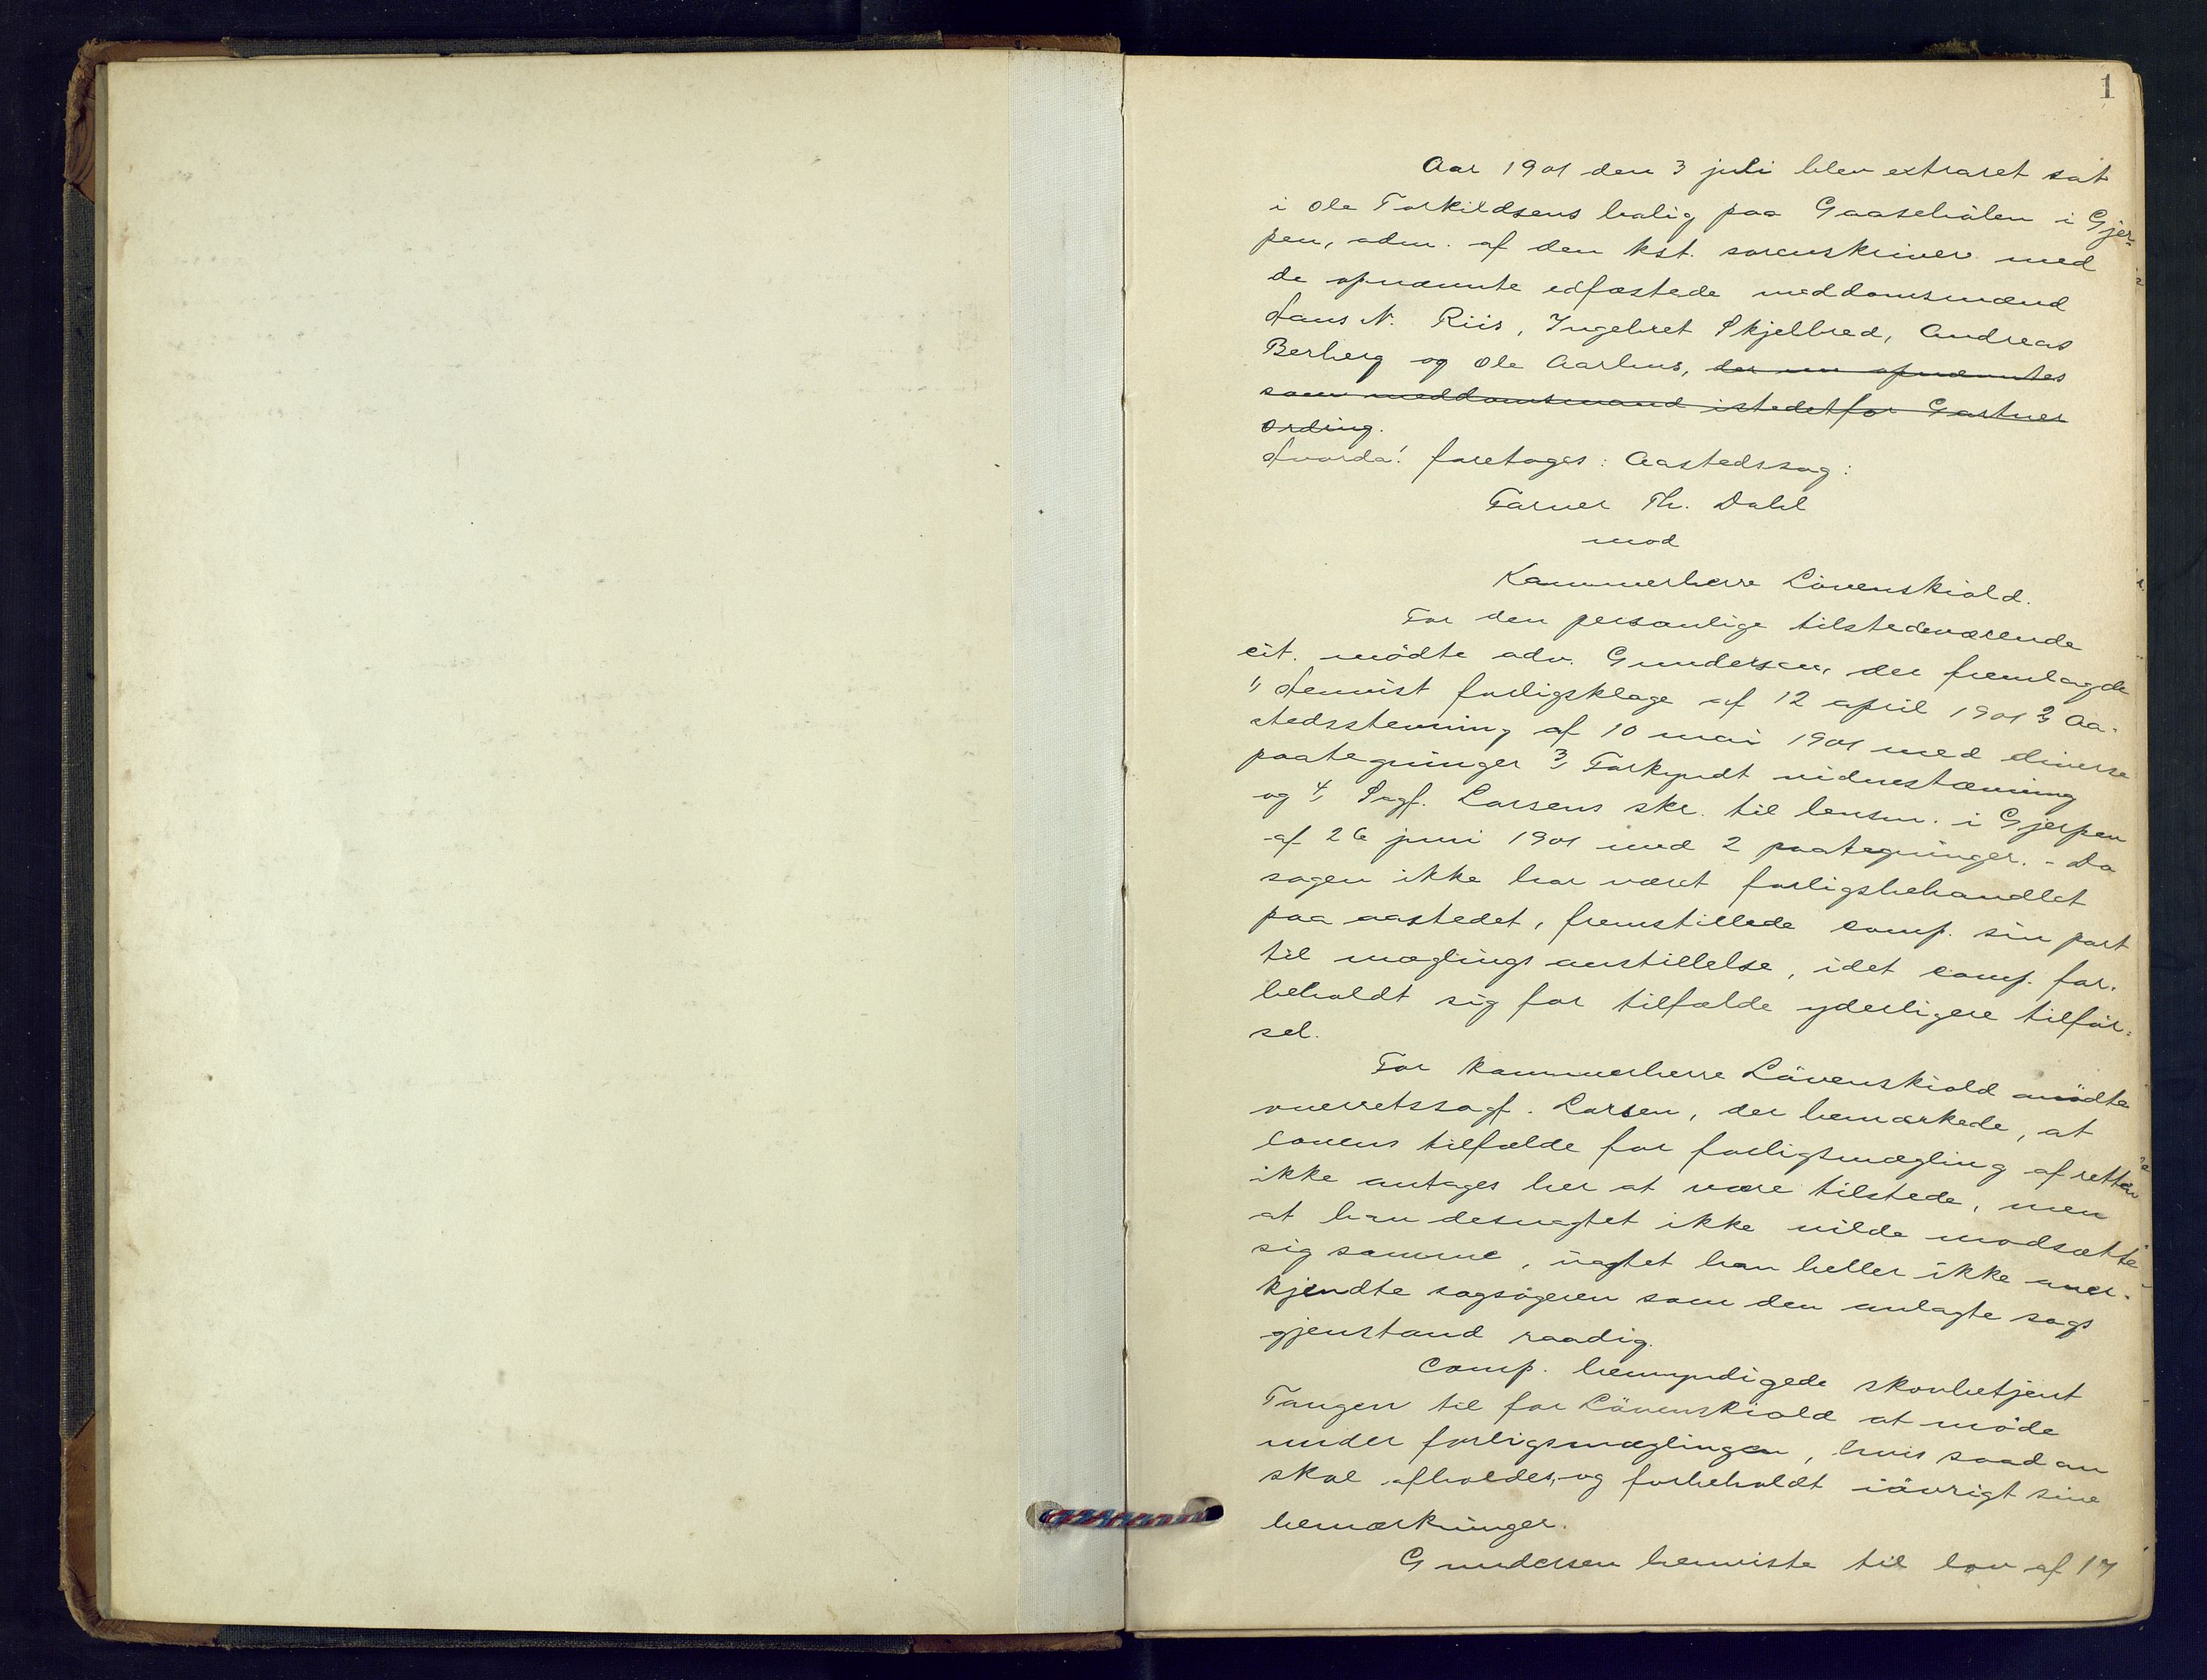 1
Aar 1901 den 3 juli blev extraret sat
i Ole Torkildsens bolig paa Gaasehölen i Gjer=
pen, adm. af den kst. sorenskriver med
de opnævnte edfæstede meddomsmænd
Hans N. Riis, Ingebret Skjelbred, Andreas
Berberg og Ole Aarhus, der opnævntes
som meddomsmand istedetfor Gartner
Ording.
Hvorda! foretoges: Aastedssag:
Farver Th. Dahl
mod
Kammerherre Lövenskiold.
For den personlige tilstedeværende
cit. mödte adv. Gundersen, der fremlagde
1, Henvist forligsklage af 12 april 1901 2, Aa-
stedsstevning af 10 mai 1901 med diverse
paategninger 3, Forkyndt vidnestævning
og 4, Sagf. Larsens skr. til lensm. i Gjerpen
af 26 juni 1901 med 2 paategninger. - Da
sagen ikke har været forligsbehandlet
paa aastedet, fremstillede comp. sin part
til mæglings anstillelse, idet comp. for-
beholdt sig for tilfælde yderligere tilför=
sel.
For Kammerherre Lövenskiold mödte
overretssagf. Larsen, der bemærkede, at
lovens tilfælde for forligsmægling af retten
ikke antages her at være tilstede, men
at han desuagtet ikke vilde modsætte
sig samme, uagtet han heller ikke aner-
kjendte sagsögeren som den anlagte sags
gjenstand raadig.
Comp. bemyndigede skovbetjent
Tangen til for Lövenskiold at möde
under forligsmæglingen, hvis saadan
skal afholdes, og forbeholdt iövrigt sine
bemærkninger.
Gundersen henviste til lov af 17